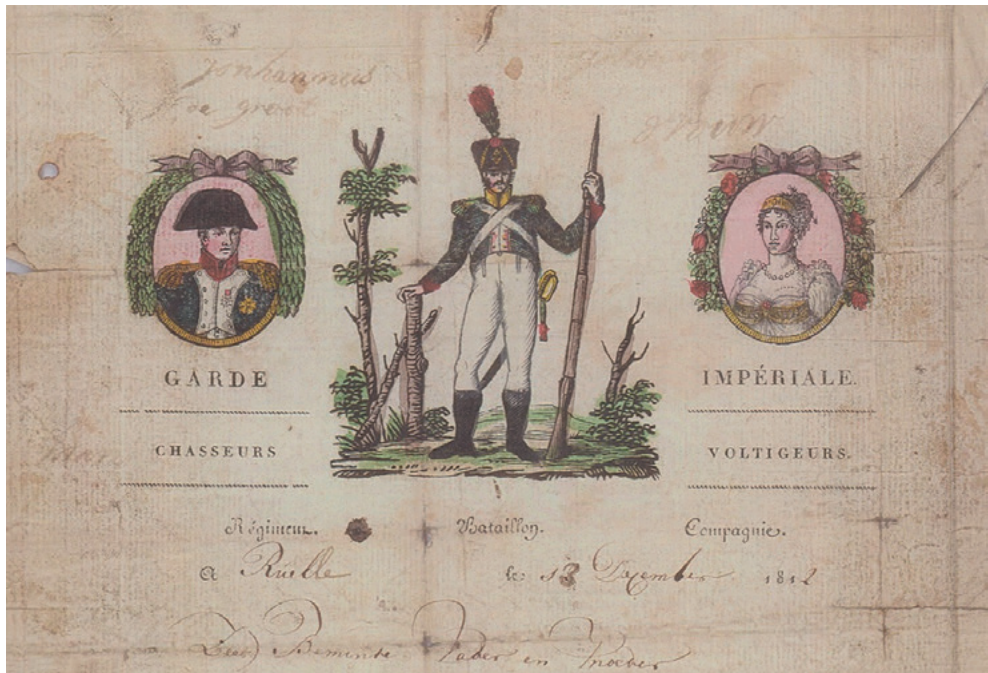 Jonhannes
de groot
GARDE IMPÉRIALE.
CHASSEURS VOLTIGEURS.
Régiment. Bataillon. Compagnie.
A Ruelle le 13 Dezember 1812
Beminde Vader en Moeder